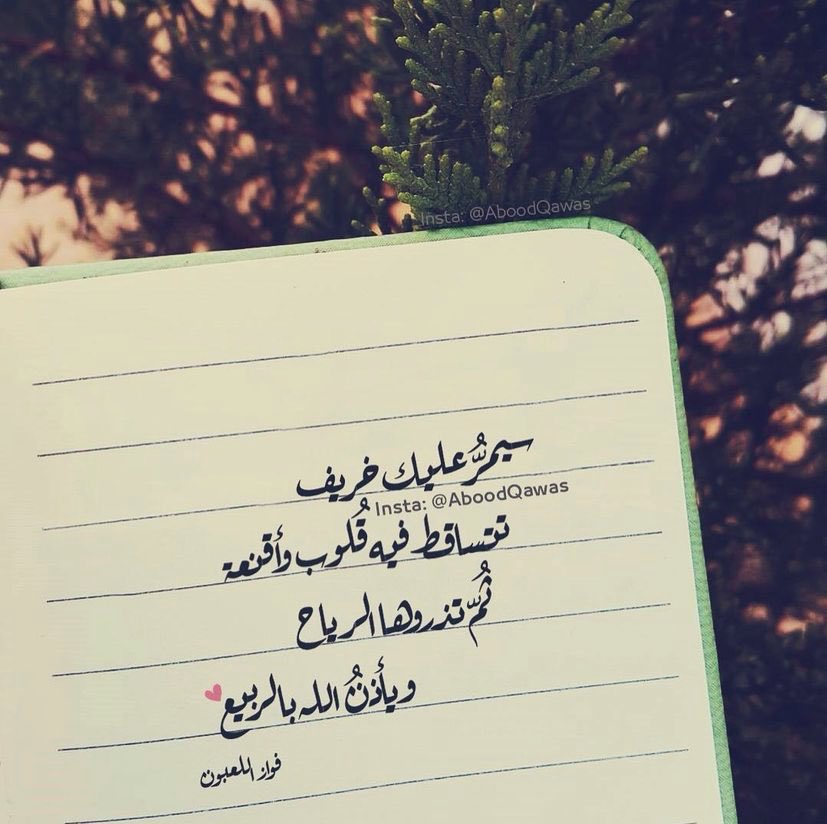 Insta: @AboodQawas
سيمرُّ عليك خريف
Insta: @AboodQawas
تتساقط فيه قُلوب وأقنعة
ثُمّ تذروها الرياح
ويأذنُ الله بالربيع
فواز اللعبون